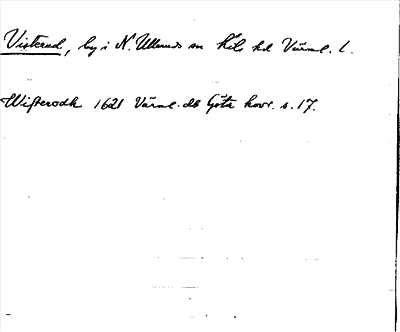 Visterud, by i N. Ullerud sn Kils hd Värml. l.
Wisterodh 1621 Värml. db Göta hovr. s. 17.